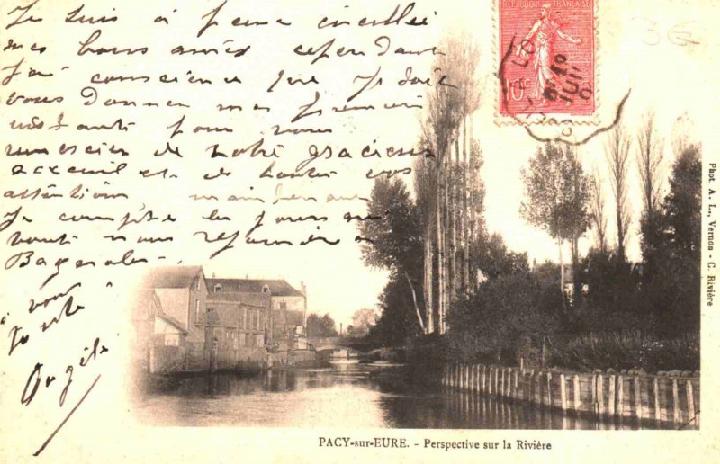 Je suis à peine éveillée
mes bons amis cependant
J'ai conscience que je dois
vous donner mes premiers
instants pour vous
remercier de votre gracieux
accueil et de toutes vos
attentions maintenant
Je compte les jours qui
vont nous réunir à
Bagnoles.
à vous
RÉPUBLIQUE FRANÇAISE
10
Phot. A. L., Vernon - C. Rivière
PACY-sur-EURE. - Perspective sur la Rivière